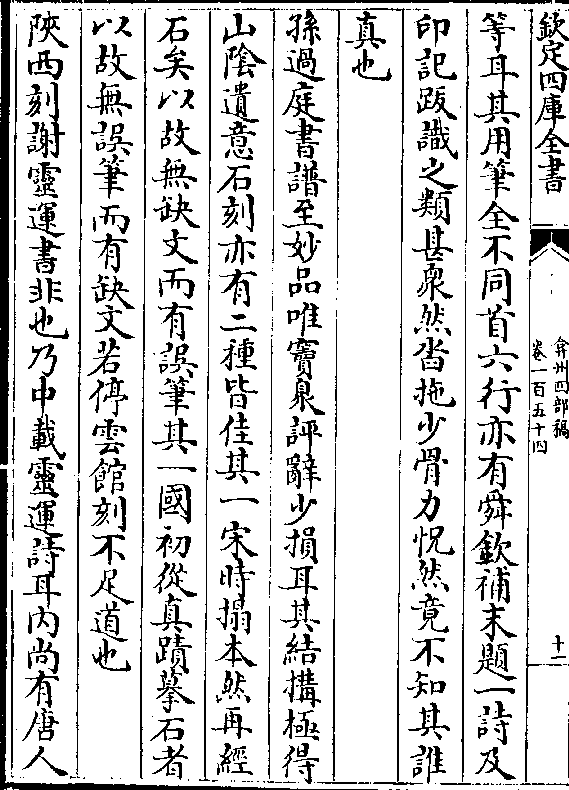 欽定四庫全書
弇州四部稿
卷一百五十四
十一
等耳其用筆全不同首六行亦有舜欽補末題一詩及
印記跋識之類甚衆然沓拖少骨力怳然竟不知其誰
真也
孫過庭書譜至妙品唯竇臮評辭少損耳其結搆極得
山陰遺意石刻亦有二種皆佳其一宋時搨本然再經
石矣以故無缺文而有誤筆其一國初從真蹟摹石者
以故無誤筆而有缺文若停雲館刻不足道也
陜西刻謝靈運書非也乃中載靈運詩耳内尚有唐人